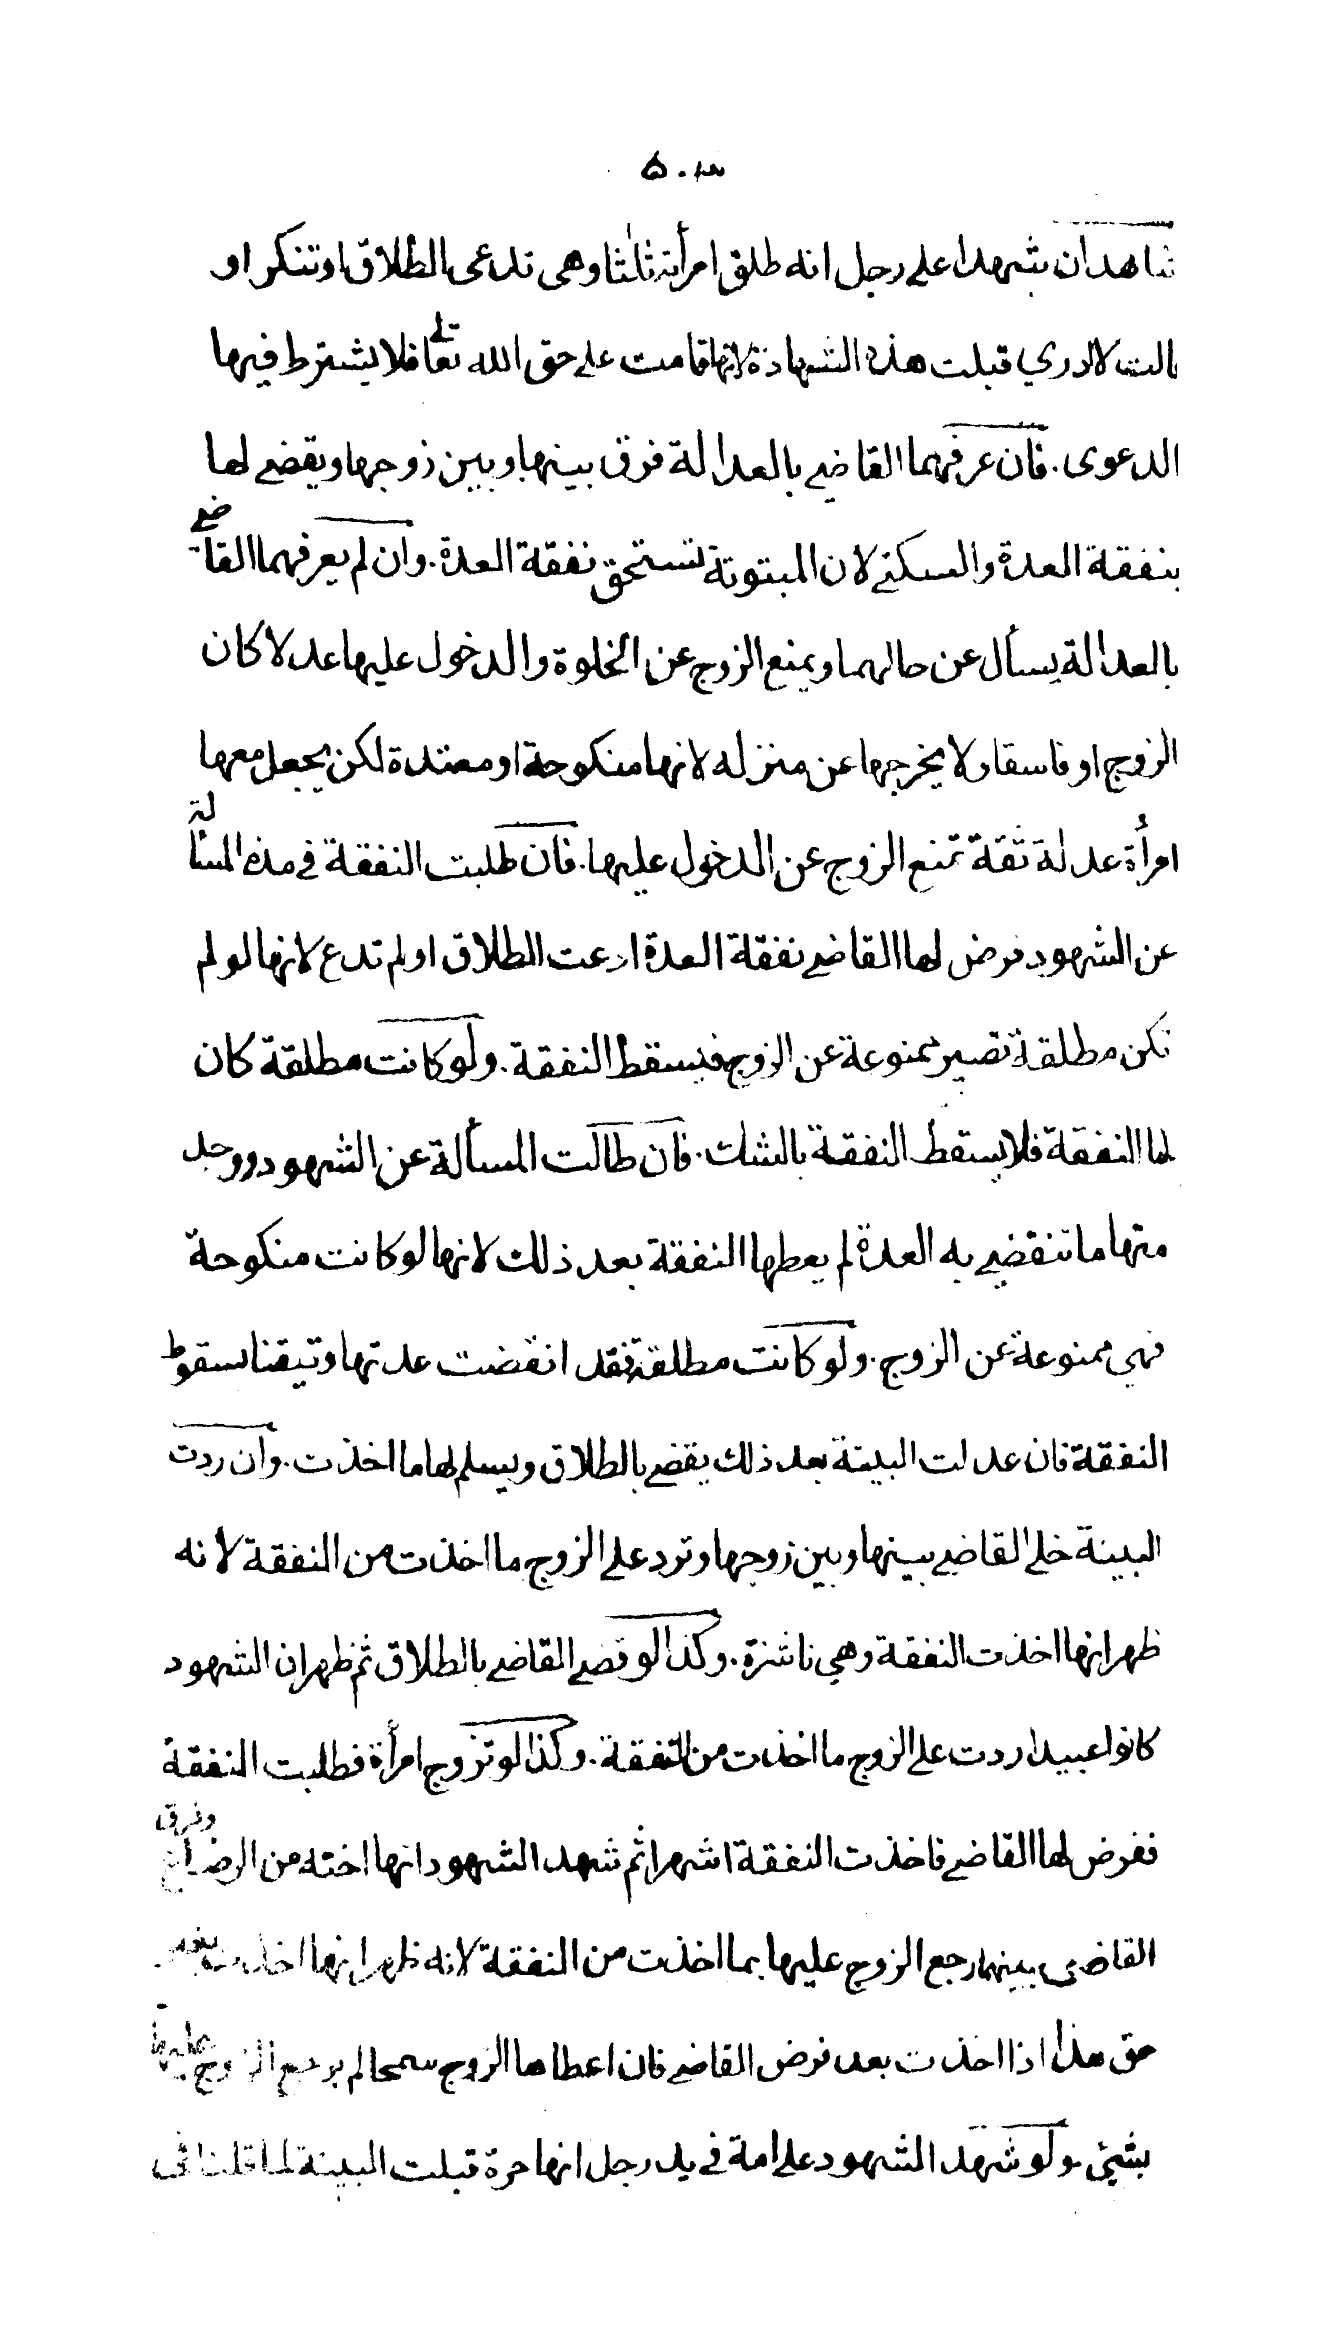 شاهدان شهدا على رجل انه طلق امرأته ثلثا وهى تدعى الطلاق او تنكر او
قالت لا ادري قبلت هذه الشهادة لانها قامت على حق الله تعالى فلا يشترط فيها
الدعوى. فان عرفهما القاضي بالعدالة فرق بينها وبين زوجها ويقضي لها
بنفقة العدة والسكنى لان المبتوتة تستحق نفقة العدة. وان لم يعرفهما القاضي
بالعدالة يسأل عن حالهما ويمنع الزوج عن الخلوة والدخول عليها عدلا كان
الزوج او فاسقا ولا يخرجها عن منزله لانها منكوحة او معتدة لكن يجعل معها
امرأة عدلة ثقة تمنع الزوج عن الدخول عليها. فان طلبت النفقة في مدة المسألة
عن الشهود فرض لها القاضي نفقة العدة ادعت الطلاق او لم تدع لانها لو لم
تكن مطلقة تصير ممنوعة عن الزوج فيسقط النفقة. ولو كانت مطلقة كان
لها النفقة فلا يسقط النفقة بالشك. فان طالت المسألة عن الشهود ووجد
منها ما تنقضي به العدة لم يعطها النفقة بعد ذلك لانها لو كانت منكوحة
فهي ممنوعة عن الزوج. ولو كانت مطلقة فقد انقضت عدتها وتيقنا بسقوط
النفقة فان عدلت البينة بعد ذلك يقضي بالطلاق ويسلم لها ما اخذت. وان ردت
البينة خلى القاضي بينها وبين زوجها وترد على الزوج ما اخذت من النفقة لانه
ظهر انها اخذت النفقة وهي ناشزة. وكذا لو قضى القاضي بالطلاق ثم ظهر ان الشهود
كانوا عبيدا ردت على الزوج ما اخذت من النفقة. وكذا لو تزوج امرأة فطلبت النفقة
ففرض لها القاضي فاخذت النفقة اشهرا ثم شهد الشهود انها اخته من الرضاع وفرق
القاضي بينهما رجع الزوج عليها بما اخذت من النفقة لانه ظهر انها اخذت بغير
حق هذا اذا اخذت بعد فرض القاضي فان اعطاها الزوج سمحا لم يرجع الزوج عليها
بشئ. ولو شهد الشهود على امة في يد رجل انها حرة قبلت البينة لما قلنا فى